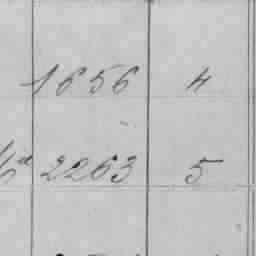 1656 4
2263 5